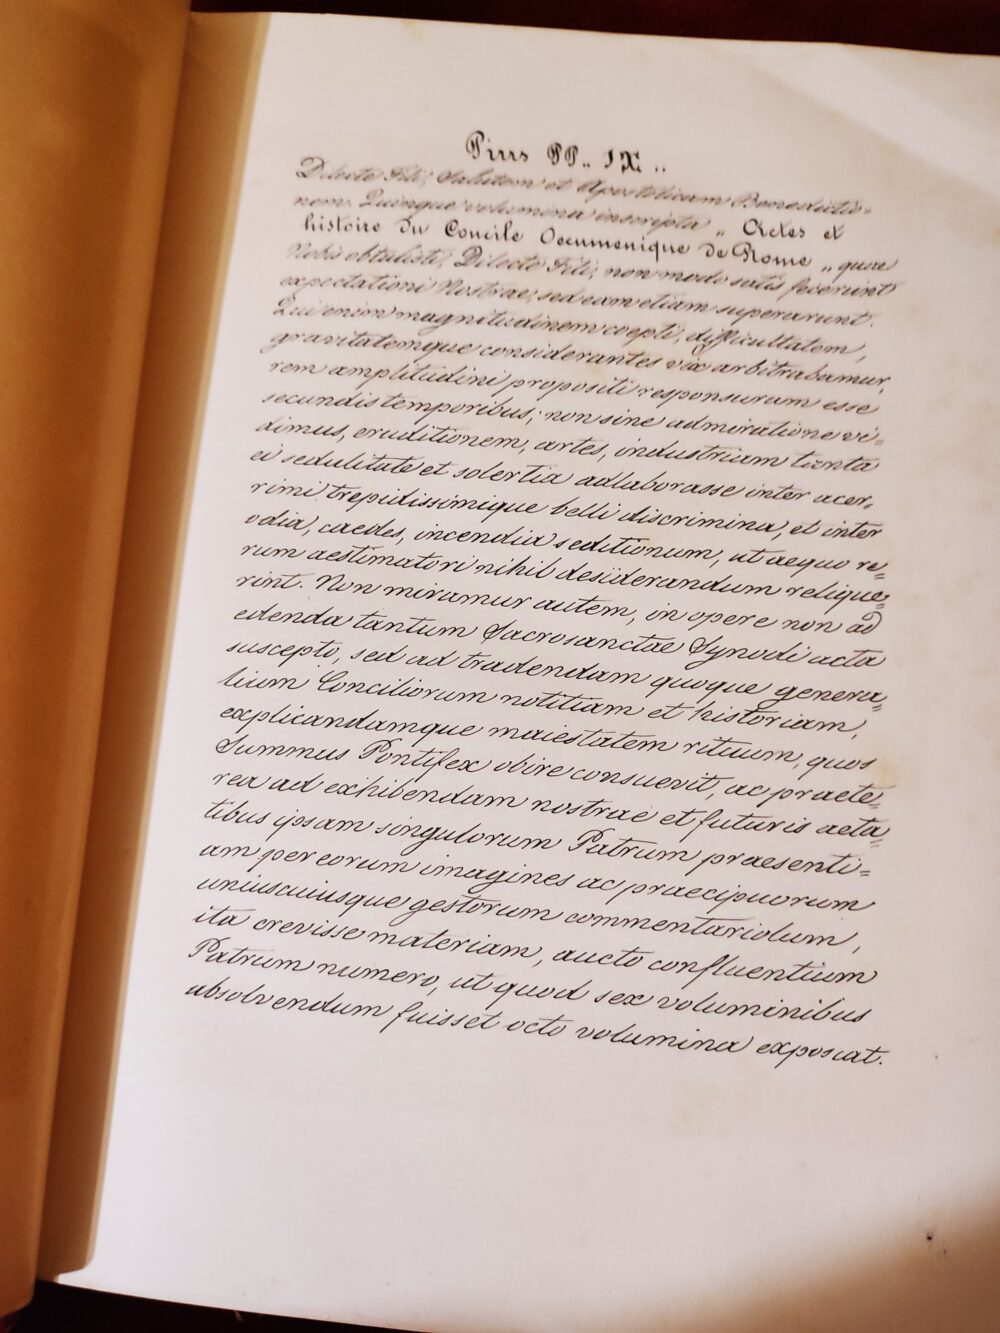 Pius PP. IX.
Dilecte Fili, Salutem et Apostolicam Benedictio=
nem. Quinque volumina inscripta „ Actes et
histoire du Concile Oecumenique de Rome „ quae
Nobis obtulisti, Dilecte Fili, non modo satis fecerunt
expectationi Nostrae, sed eam etiam superarunt.
Qui enim magnitudinem coepti, difficultatem,
gravitatemque considerantes vix arbitrabamur,
rem amplitudini propositi responsuram esse
secundis temporibus; non sine admiratione vi=
dimus, eruditionem, artes, industriam tanta
ei sedulitate et solertia adlaborasse inter acer=
rimi trepidissimique belli discrimina, et inter
odia, caedes, incendia seditionum, ut aequo re=
rum aestimatori nihil desiderandum relique=
rint. Non miramur autem, in opere non ad
edenda tantum Sacrosanctae Synodi acta
suscepto, sed ad tradendam quoque genera=
lium Conciliorum notitiam et historiam,
explicandamque maiestatem rituum, quos
Summus Pontifex obire consuevit, ac praete=
rea ad exhibendam nostrae et futuris aeta=
tibus ipsam singulorum Patrum praesenti=
am per eorum imagines ac praecipuorum
uniuscuiusque gestorum commentariolum,
ita crevisse materiam, aucto confluentium
Patrum numero, ut quod sex voluminibus
absolvendum fuisset octo volumina exposcat.